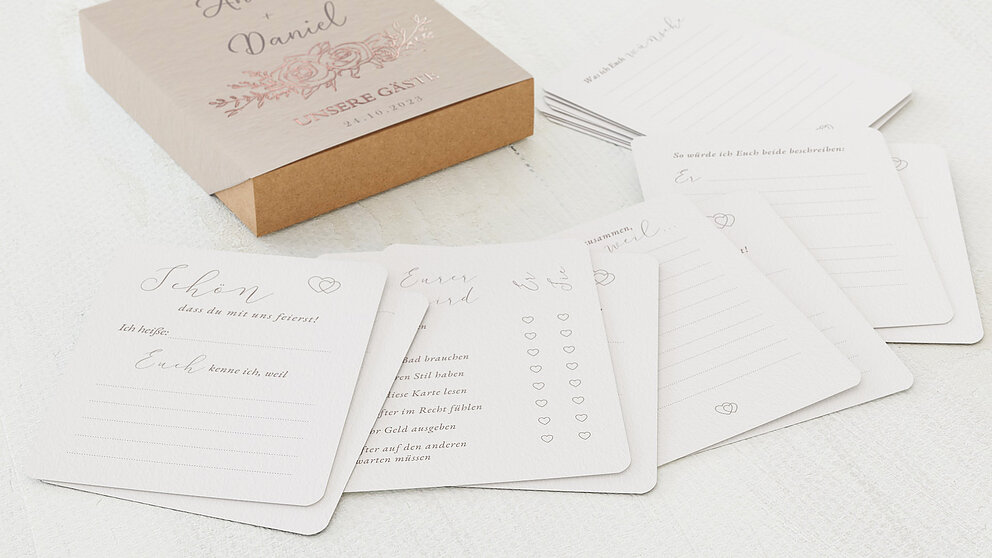 +
Daniel
UNSERE GÄSTE
24.10.2023
Was ich Euch wünsche
So würde ich Euch beide beschreiben:
Er
zusammen,
weil...
Schön
dass du mit uns feierst!
Ich heiße:
Euch kenne ich, weil
Eurer
Er Sie
Bad brauchen
ren Stil haben
diese Karte lesen
fter im Recht fühlen
hr Geld ausgeben
fter auf den anderen
warten müssen